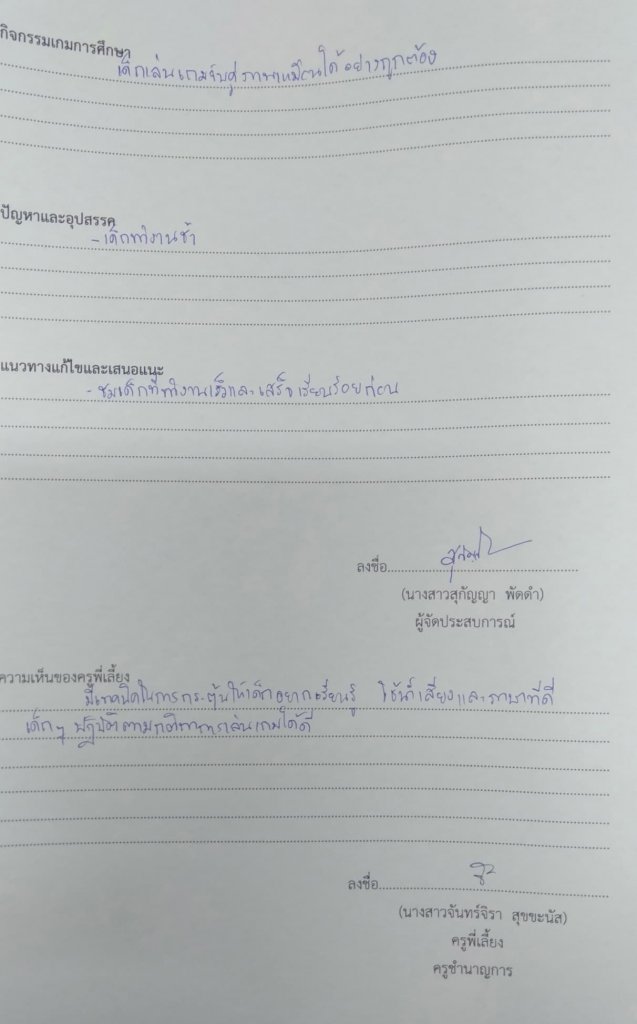 กิจกรรมเกมการศึกษา
เด็กเล่นเกมจับคู่ภาพเหมือนได้อย่างถูกต้อง
ปัญหาและอุปสรรค
- เด็กทำงานช้า
แนวทางแก้ไขและเสนอแนะ
- ชมเด็กที่ทำงานเร็วและเสร็จเรียบร้อยก่อน
ลงชื่อ
(นางสาวสุกัญญา พัดดำ)
ผู้จัดประสบการณ์
ความเห็นของครูพี่เลี้ยง
มีเทคนิคในการกระตุ้นให้เด็กอยากเรียนรู้ ใช้น้ำเสียงและภาษาที่ดี
เด็กๆ ปฏิบัติตามกติกาการเล่นเกมได้ดี
ลงชื่อ
(นางสาวจันทร์จิรา สุขขะนัส)
ครูพี่เลี้ยง
ครูชำนาญการ